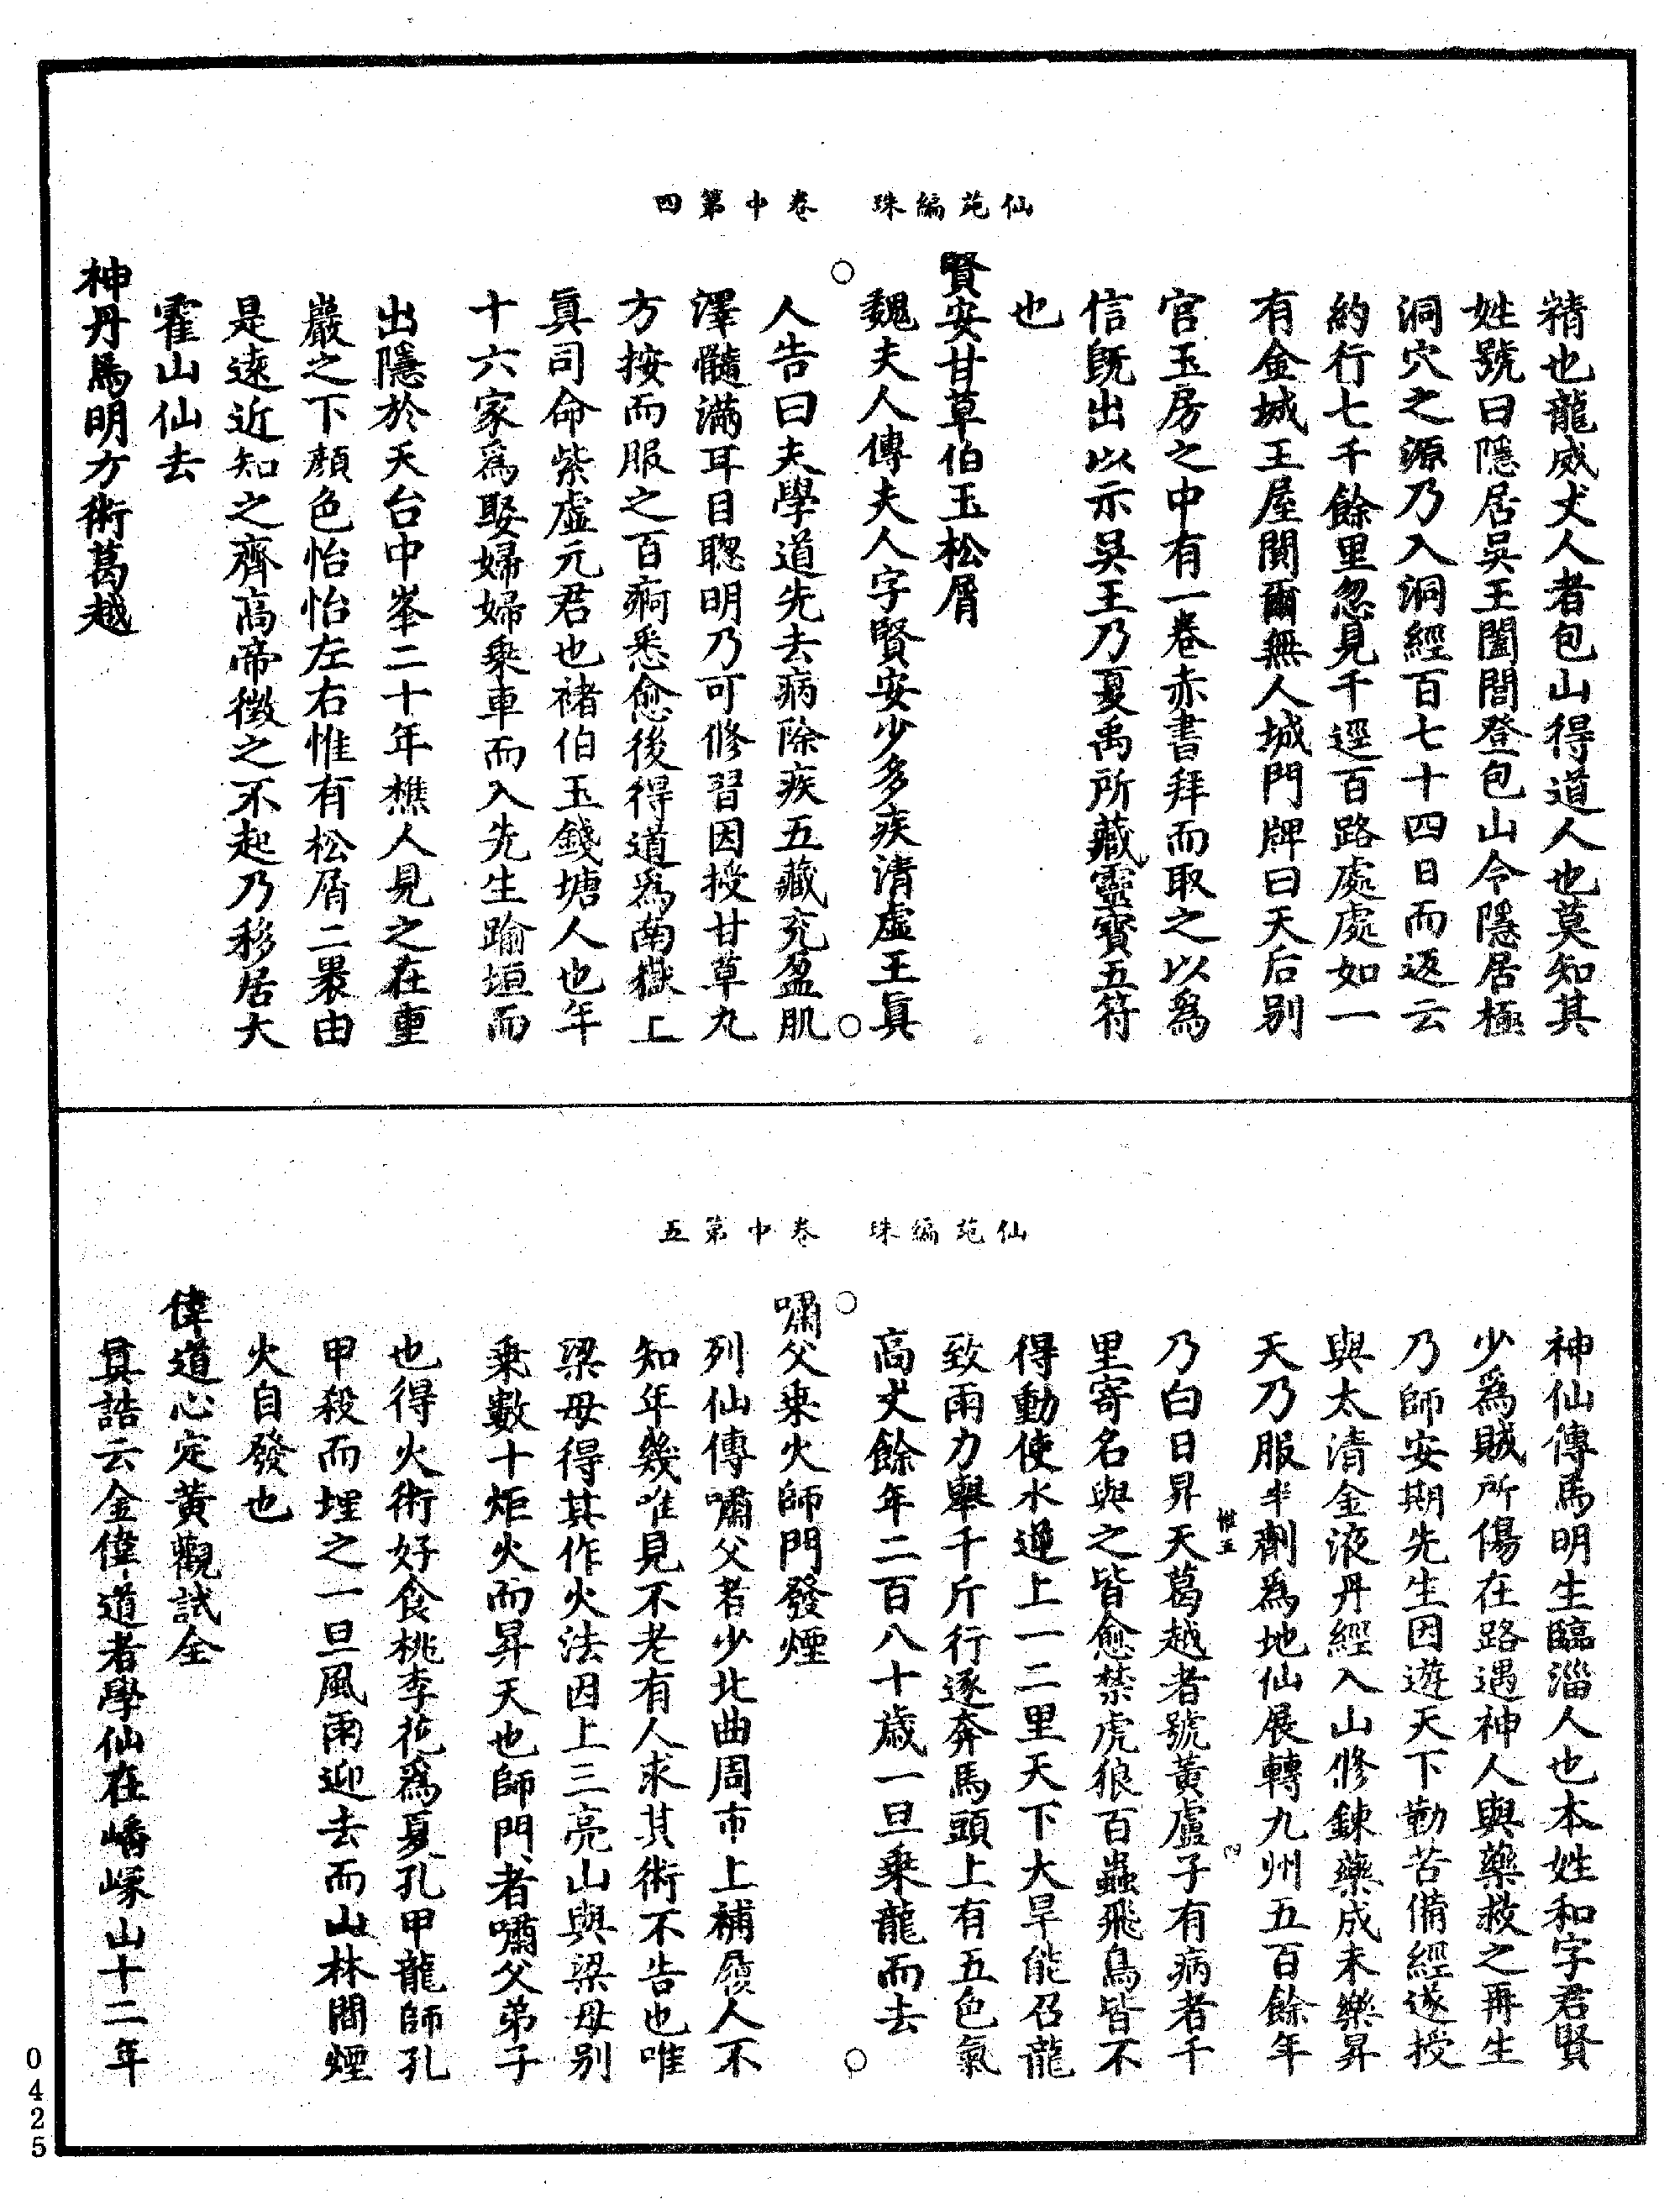 仙苑編珠　卷中第四
精也龍威丈人者包山得道人也莫知其
姓號曰隱居吳王闔閭登包山令隱居極
洞穴之源乃入洞經百七十四日而返云
約行七千餘里忽見千逕百路處處如一
有金城玉屋閴爾無人城門牌曰天后別
宮玉房之中有一卷赤書拜而取之以為
信旣出以示吳王乃夏禹所藏靈寶五符
也
賢安甘草伯玉松屑
魏夫人傳夫人字賢安少多疾清虛王眞
人告曰夫學道先去病除疾五藏充盈肌
澤髓滿耳目聰明乃可修習因授甘草丸
方按而服之百痾悉愈後得道爲南嶽上
眞司命紫虛元君也褚伯玉錢塘人也年
十六家爲娶婦婦乗車而入先生踰垣而
出隱於天台中峯二十年樵人見之在重
巖之下顏色怡怡左右惟有松屑二裹由
是遠近知之齊高帝徵之不起乃移居大
霍山仙去
神丹馬明方術葛越
仙苑編珠　卷中第五
神仙傳馬明生臨淄人也本姓和字君賢
少爲賊所傷在路遇神人與藥救之再生
乃師安期先生因遊天下勤苦備經遂授
與太清金液丹經入山修鍊藥成未樂昇
天乃服半劑爲地仙展轉九州五百餘年
乃白日昇天葛越者號黃盧子有病者千
里寄名與之皆愈禁虎狼百蟲飛鳥皆不
得動使水逆上一二里天下大旱能召龍
致雨力舉千斤行逐奔馬頭上有五色氣
高丈餘年二百八十歲一旦乗龍而去
嘯父乗火師門發煙
列仙傳嘯父者少北曲周市上補履人不
知年幾唯見不老有人求其術不告也唯
梁母得其作火法因上三亮山與梁母別
乗數十炬火而昇天也師門者嘯父弟子
也得火術好食桃李花爲夏孔甲龍師孔
甲殺而埋之一旦風雨迎去而山林間煙
火自發也
偉道心定黃觀試全
眞誥云金偉道者學仙在嶓嵊山十二年
0425